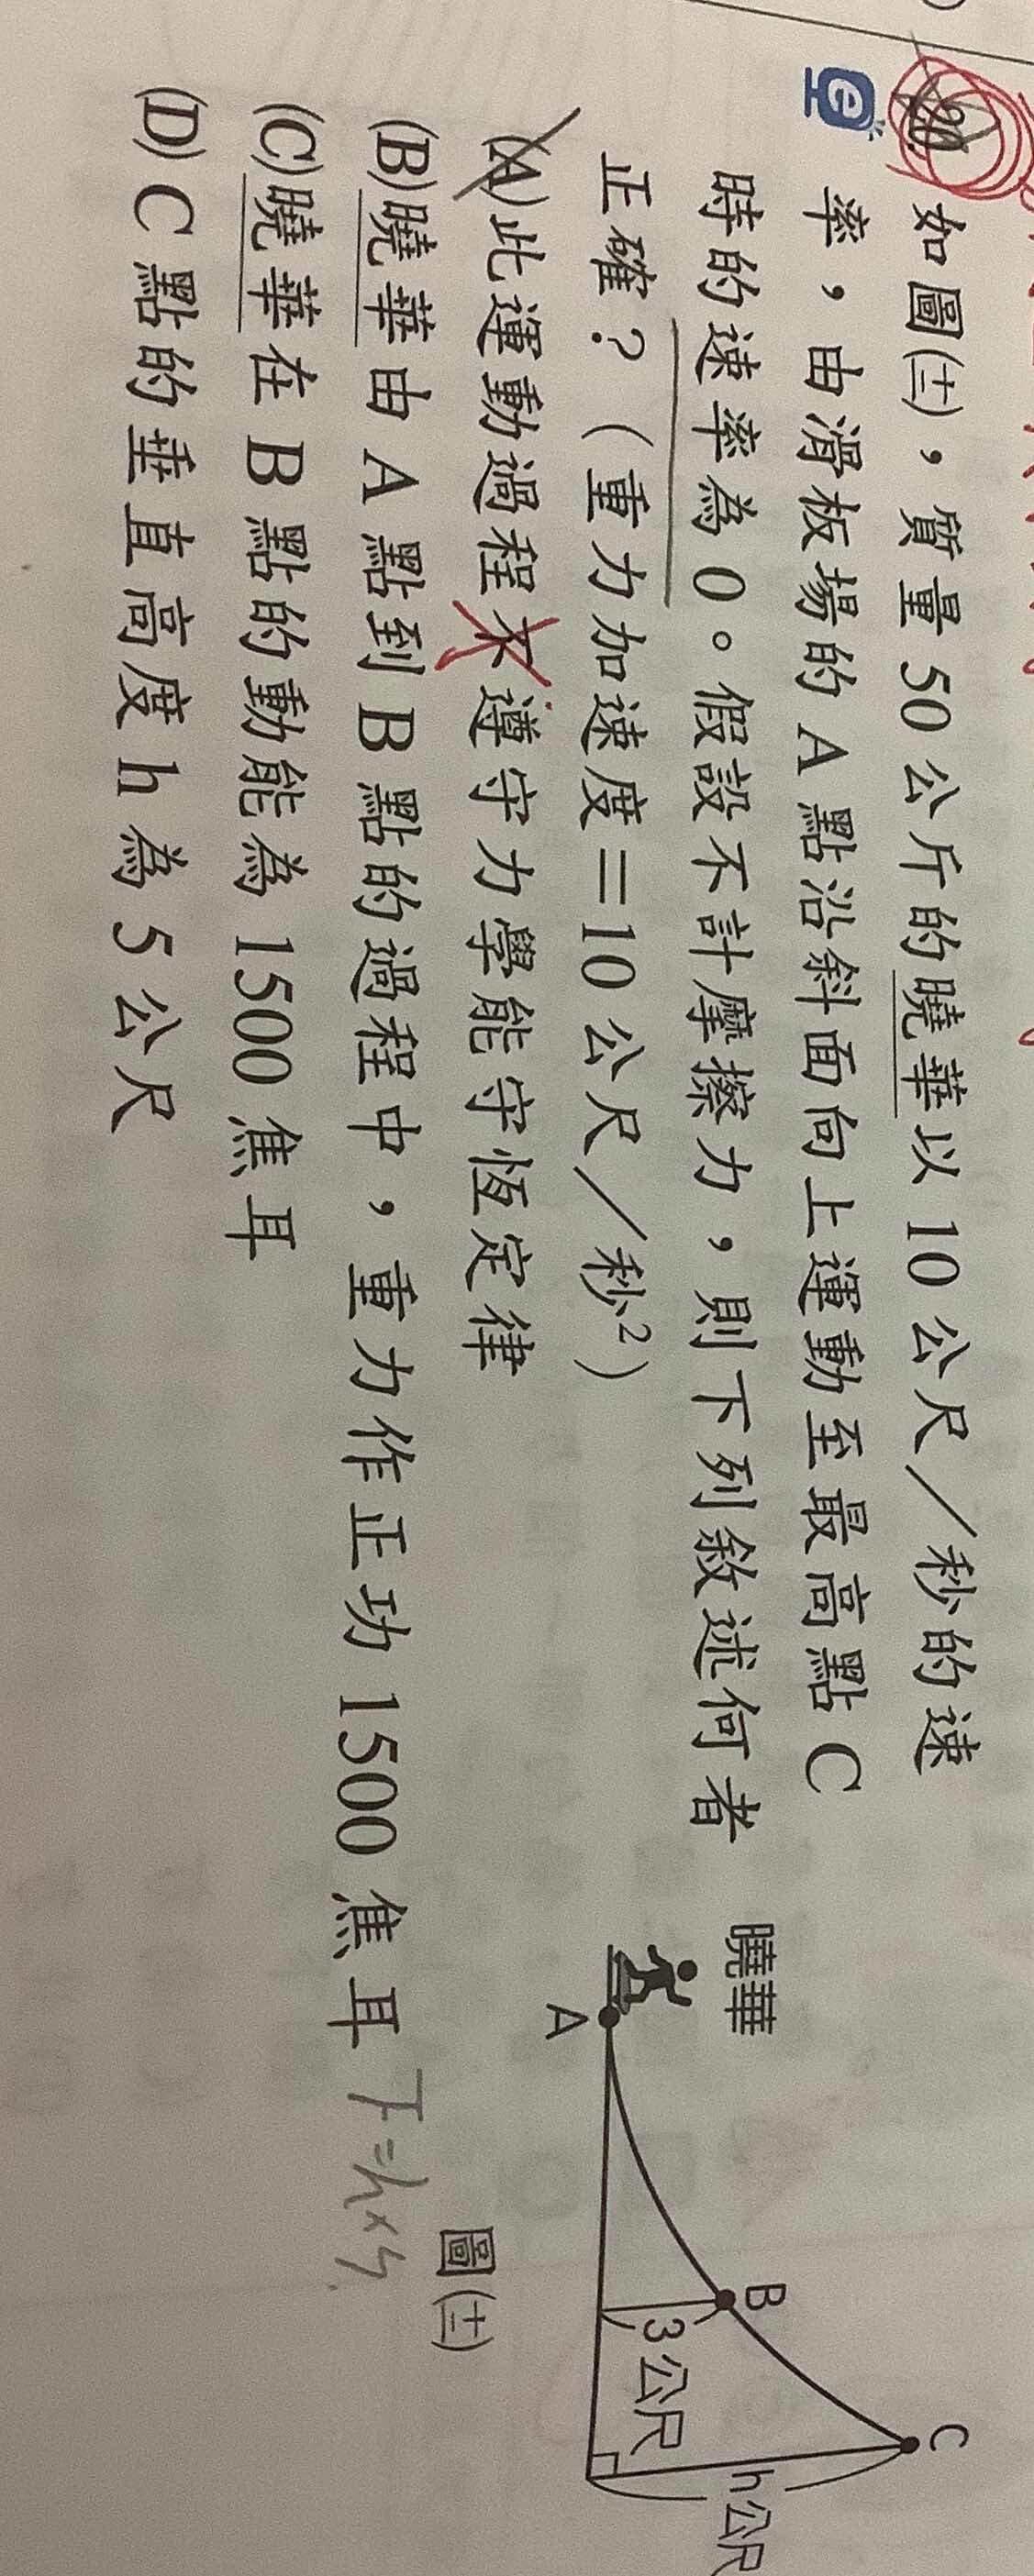 20. 如圖(十二),質量 50 公斤的曉華以 10 公尺/秒的速
率,由滑板場的 A 點沿斜面向上運動至最高點 C
時的速率為 0。假設不計摩擦力,則下列敘述何者
正確?(重力加速度=10 公尺/秒²)
(A)此運動過程不遵守力學能守恆定律
(B)曉華由 A 點到 B 點的過程中,重力作正功 1500 焦耳
(C)曉華在 B 點的動能為 1500 焦耳
(D)C 點的垂直高度 h 為 5 公尺
e
曉華
A
B
3公尺
C
h公尺
圖(十二)